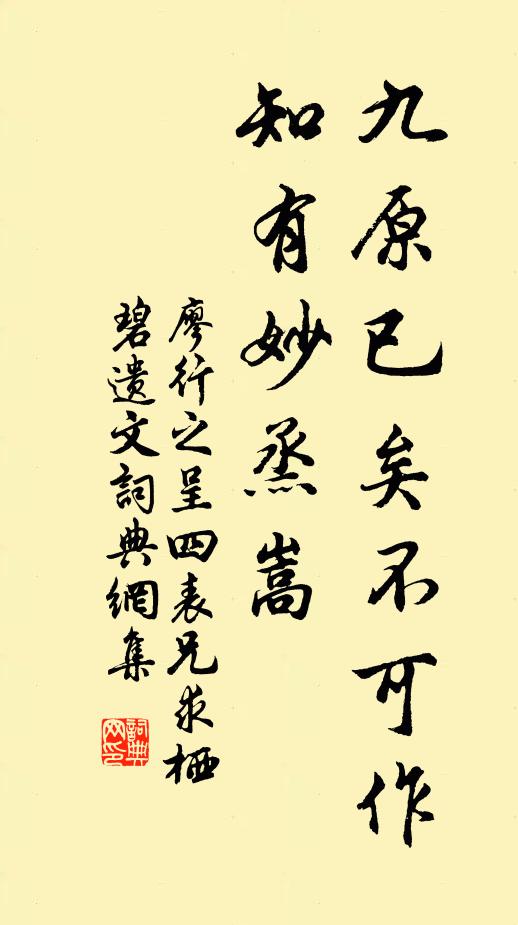 九原已矣不可作
知有妙烝嵩
廖行之呈四表兄求栖
碧遗文詞典網集
詞典网印